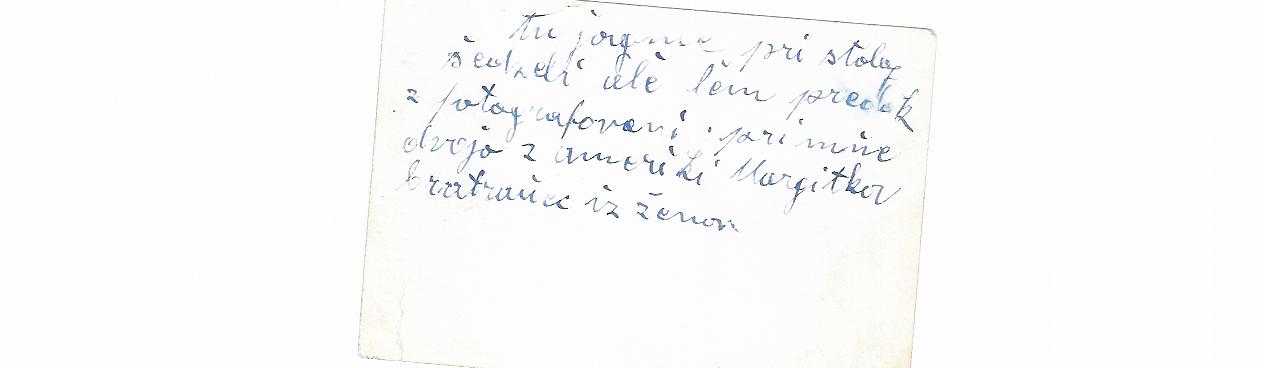 tu pri stoloy
šedzeli ale lem predok
z fotografovani, pri mňe
dvojo z Ameriki Margitkov
bratraňec iz ženov